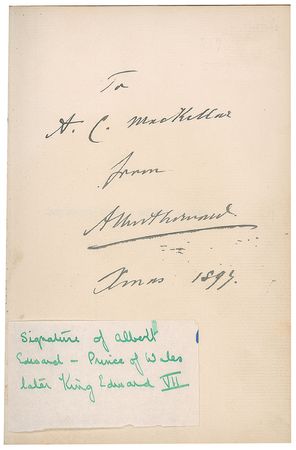 To
A. C. MacKellar
from
Xmas 1897.
Signature of Albert
Edward – Prince of Wales
later King Edward VII